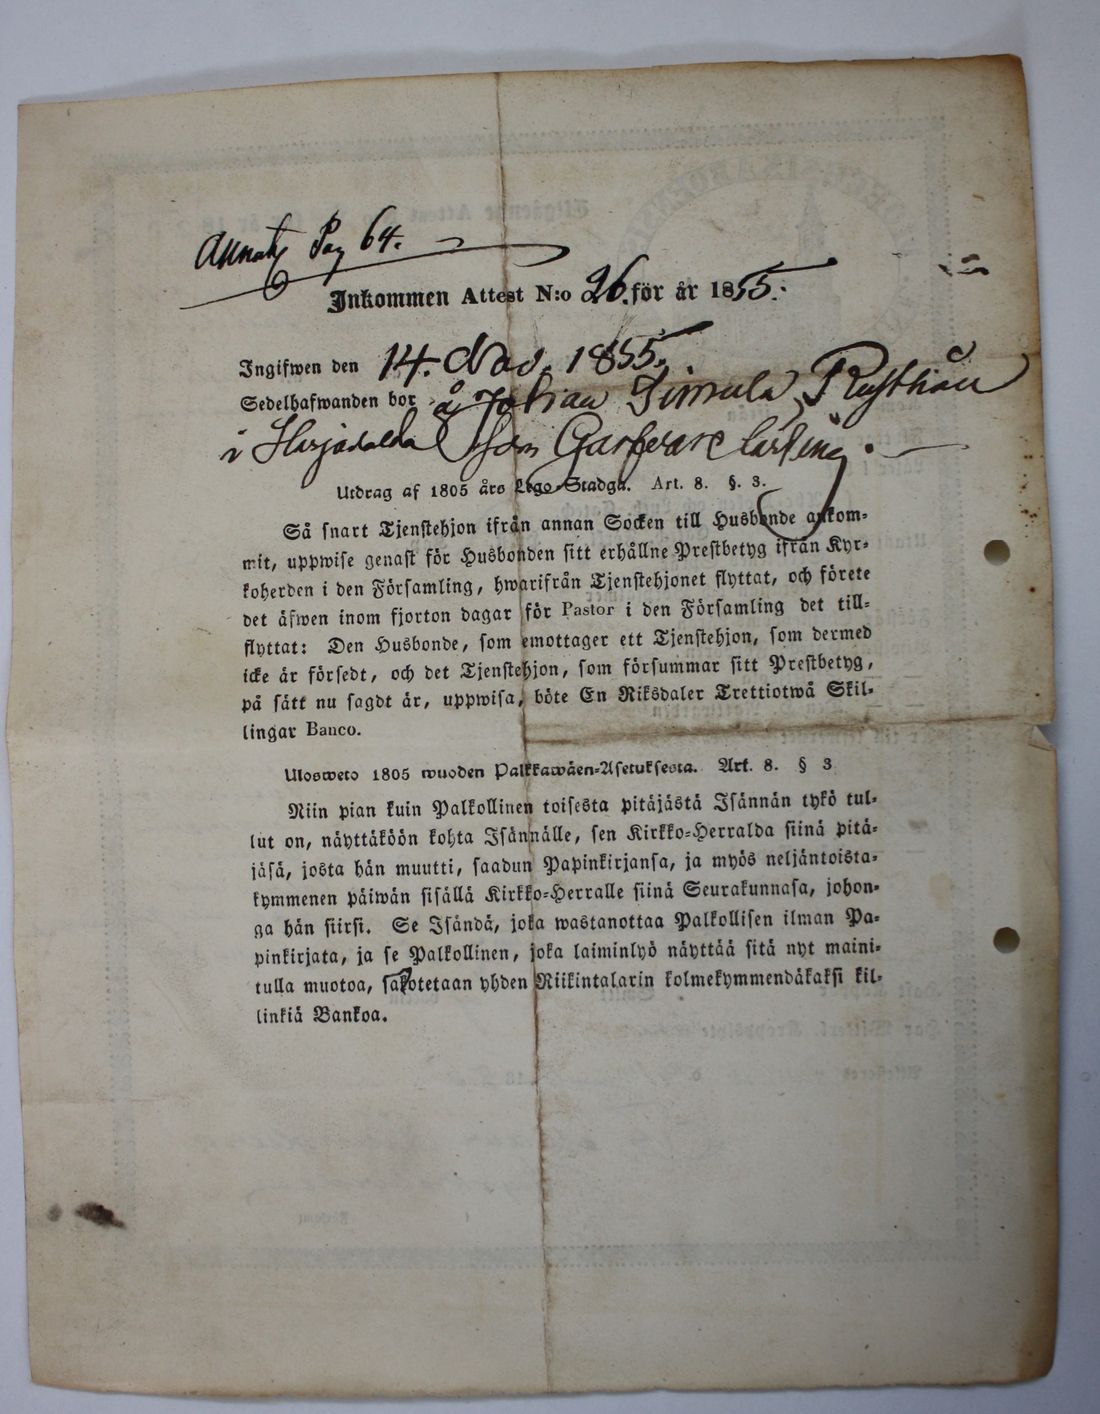 Annoty Pag 64.
Inkommen Attest N:o 26. för år 1855.
Ingifwen den 14. Nov. 1855.
Sedelhafwanden bor å Johan Simula Rusthåll
i Harjavalda som Garfvare lärling.
Utdrag af 1805 års Lego-Stadga. Art. 8. §. 3.
Så snart Tjenstehjon ifrån annan Socken till Husbonde ankom-
mit, uppwise genast för Husbonden sitt erhållne Prestbetyg ifrån Kyr-
koherden i den Församling, hwarifrån Tjenstehjonet flyttat, och förete
det äfwen inom fjorton dagar för Pastor i den Församling det till-
flyttat: Den Husbonde, som emottager ett Tjenstehjon, som dermed
icke är försedt, och det Tjenstehjon, som försummar sitt Prestbetyg,
på sätt nu sagdt är, uppwisa, böte En Riksdaler Trettiotwå Skil-
lingar Banco.
Ulosweto 1805 wuoden Palkkawäen-Asetuksesta. Art. 8. § 3
Niin pian kuin Palkollinen toisesta pitäjästä Isännän tykö tul-
lut on, näyttäköön kohta Isännälle, sen Kirkko-Herralda siinä pitä-
jäsä, josta hän muutti, saadun Papinkirjansa, ja myös neljäntoista-
kymmenen päiwän sisällä Kirkko-Herralle siinä Seurakunnasa, johon-
ga hän siirsi. Se Isändä, joka wastanottaa Palkollisen ilman Pa-
pinkirjata, ja se Palkollinen, joka laiminlyö näyttää sitä nyt maini-
tulla muotoa, sakotetaan yhden Riikintalarin kolmekymmendäkaksi kil-
linkiä Bankoa.